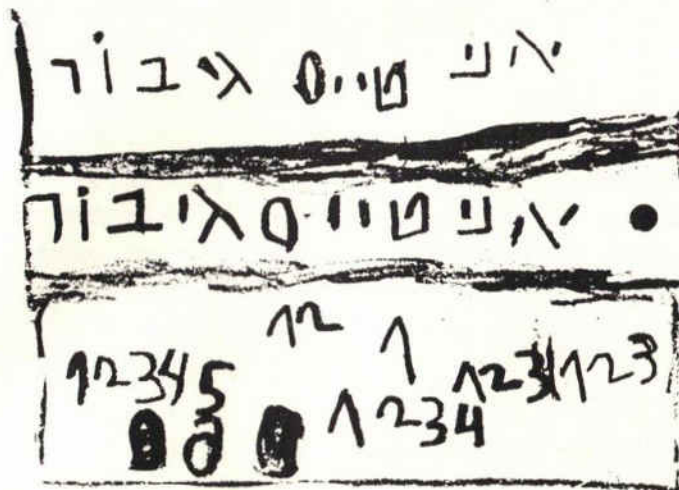 אני טייס גיבור
אני טייס גיבור
12
1
12345
123
123
1234